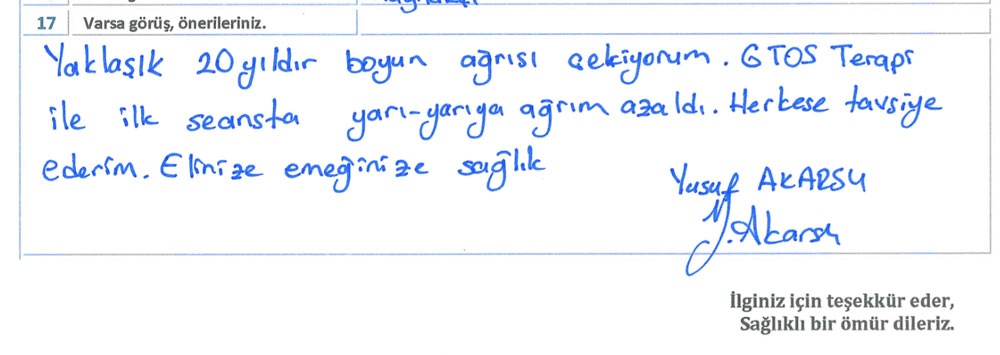 17 Varsa görüş, önerileriniz.
Yaklaşık 20 yıldır boyun ağrısı çekiyorum. GTOS Terapi
ile ilk seansta yarı-yarıya ağrım azaldı. Herkese tavsiye
ederim. Elinize emeğinize sağlık
Yusuf AKARSU
Y.Akarsu
İlginiz için teşekkür eder,
Sağlıklı bir ömür dileriz.